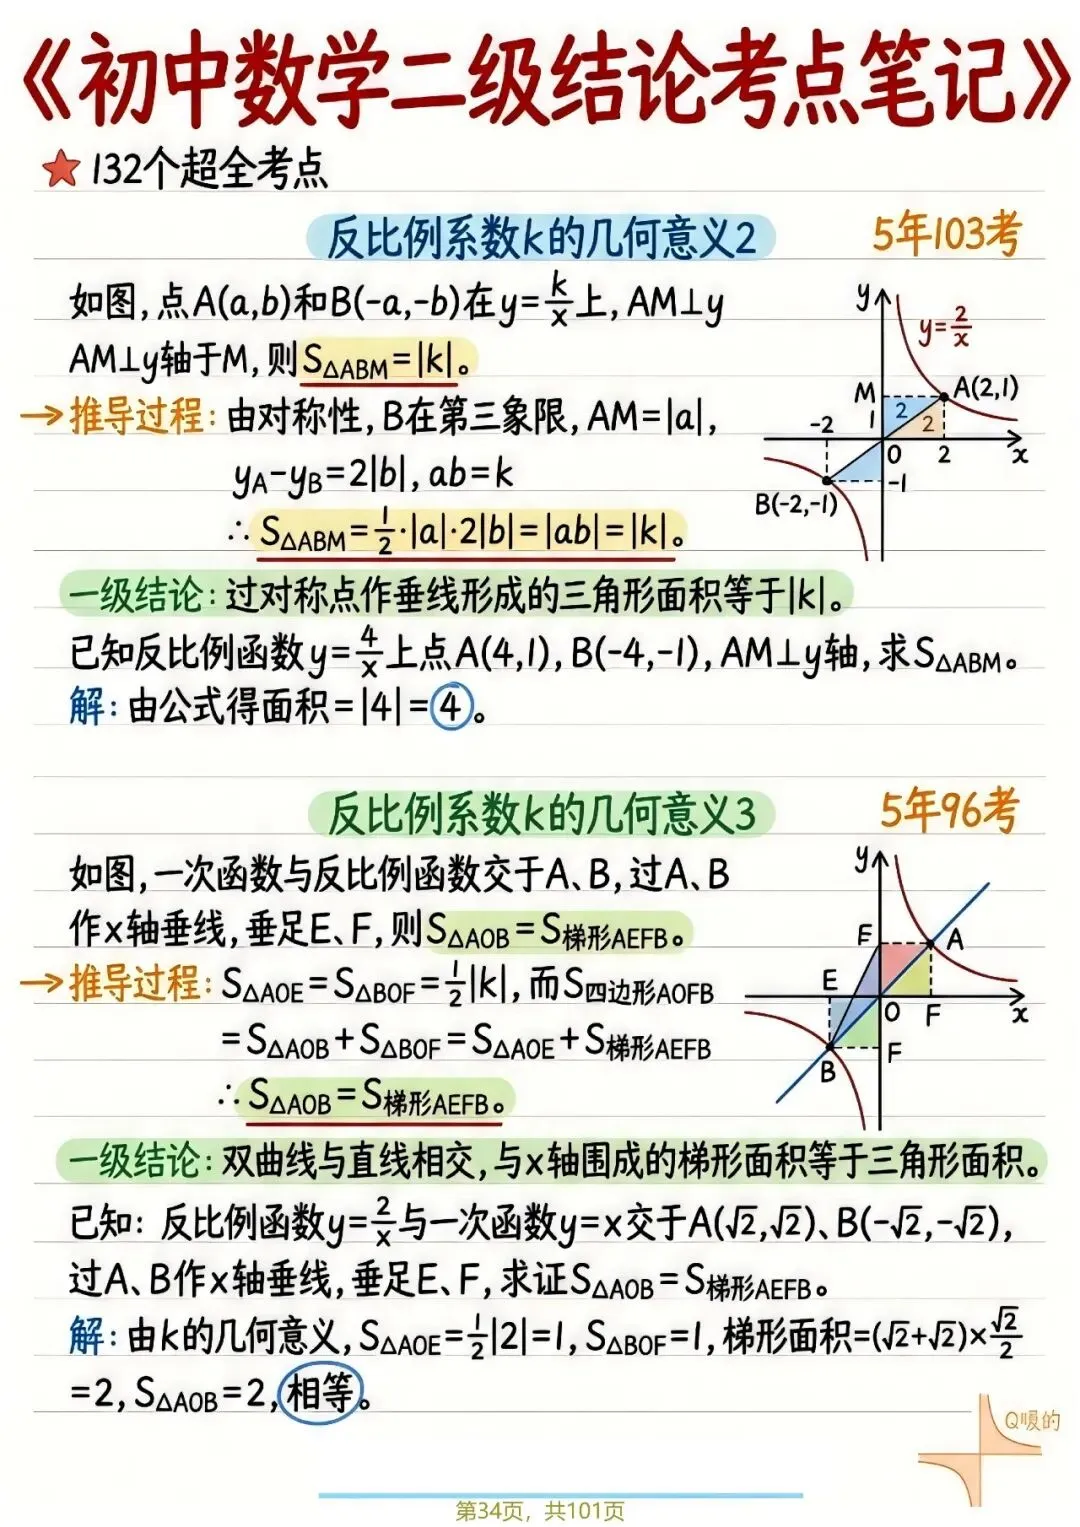 《初中数学二级结论考点笔记》
132个超全考点
反比例系数k的几何意义2
5年103考
如图,点A(a,b)和B(-a,-b)在y=k/x上,AM⊥y
AM⊥y轴于M,则S△ABM=|k|。
→推导过程:由对称性,B在第三象限,AM=|a|,
yA-yB=2|b|,ab=k
∴S△ABM=1/2·|a|·2|b|=|ab|=|k|。
y
y=2/x
M
A(2,1)
-2
1
2
2
0
2
x
-1
B(-2,-1)
一级结论:过对称点作垂线形成的三角形面积等于|k|。
已知反比例函数y=4/x上点A(4,1),B(-4,-1),AM⊥y轴,求S△ABM。
解:由公式得面积=|4|=4。
反比例系数k的几何意义3
5年96考
如图,一次函数与反比例函数交于A、B,过A、B
作x轴垂线,垂足E、F,则S△AOB=S梯形AEFB。
→推导过程:S△AOE=S△BOF=1/2|k|,而S四边形AOFB
=S△AOB+S△BOF=S△AOE+S梯形AEFB
∴S△AOB=S梯形AEFB。
y
A
E
0
F
x
F
B
一级结论:双曲线与直线相交,与x轴围成的梯形面积等于三角形面积。
已知:反比例函数y=2/x与一次函数y=x交于A(√2,√2)、B(-√2,-√2),
过A、B作x轴垂线,垂足E、F,求证S△AOB=S梯形AEFB。
解:由k的几何意义,S△AOE=1/2|2|=1,S△BOF=1,梯形面积=(√2+√2)×√2/2
=2,S△AOB=2,相等。
第34页,共101页